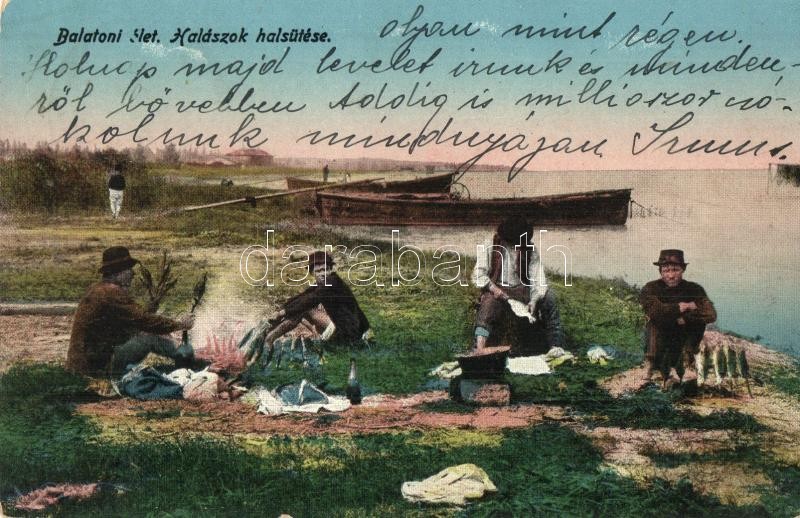 Balatoni élet. Halászok halsütése.
olyan mint régen.
Holnap majd levelet irunk és minden-
ről bővebben Addig is milliószor csó-
kolunk mindnyájan Irmus.
darabanth